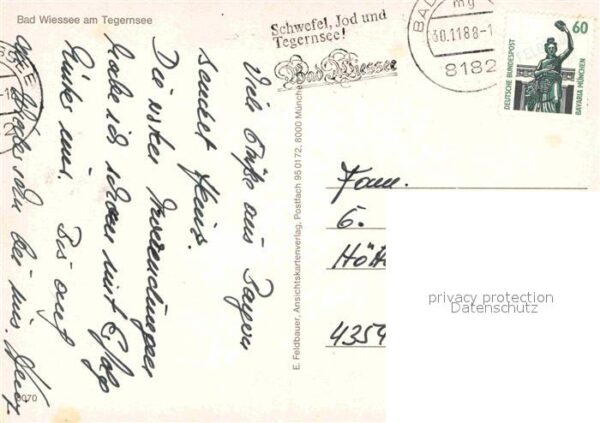 Bad Wiessee am Tegernsee
Schwefel, Jod und
Tegernsee!
Bad Wiessee
30.11.88-1
8182
60
DEUTSCHE BUNDESPOST
BAVARIA MÜNCHEN
Viele Grüße aus Bayern
sendet Heinz.
Die ersten Anwendungen
habe ich schon mit Erfolg
hinter mir. Bis auf
bei mir. Heinz
E. Feldbauer, Ansichtskartenverlag, Postfach 95 01 72, 8000 München
Fam.
6.
4354
privacy protection
Datenschutz